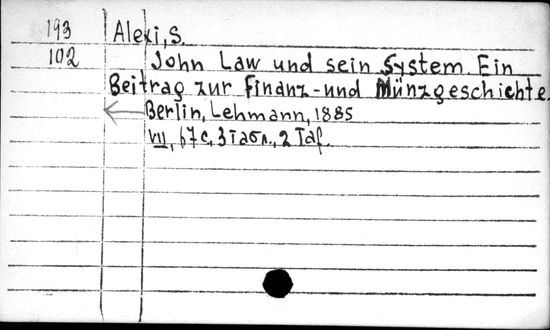 193 Alexi, S.
102 John Law und sein System. Ein
Beitrag zur Finanz-und Münzgeschichte.
Berlin, Lehmann, 1885
VII, 67 c, 3 табл., 2 Taf.